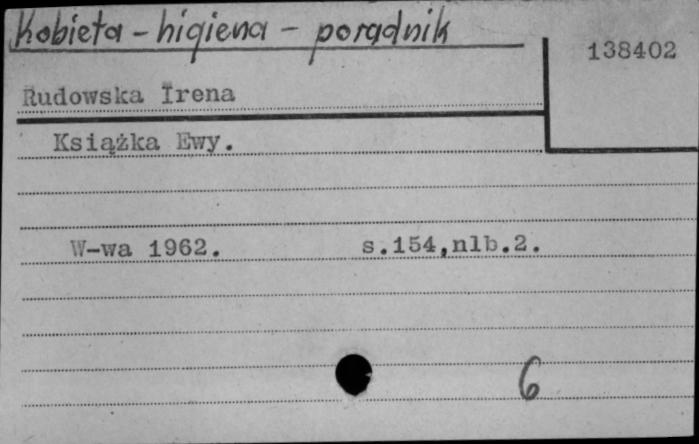 Kobieta - higiena - poradnik
138402
Rudowska Irena
Książka Ewy.
W-wa 1962. s.154,nlb.2.
6